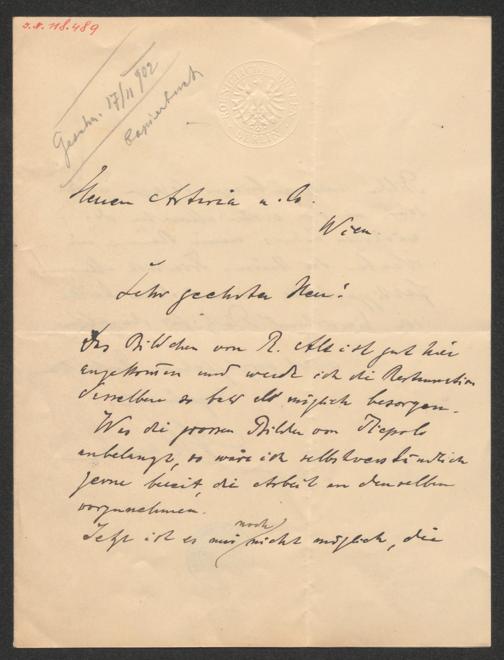 J.N. 118.489
Geschr. 17/11 902
Copierbuch
KÖNIGLICHE MUSEEN
BERLIN
Herren Artaria u. Co.
Wien.
Sehr geehrter Herr!
Das Bildchen von R. Alt ist gut hier
angekommen und werde ich die Restauration
desselben so bald als möglich besorgen.
Was die grossen Bilder von Tiepolo
anbelangt, so wäre ich selbstverständlich
gerne bereit, die Arbeit an denselben
vorzunehmen.
Jetzt ist es mir noch nicht möglich, die